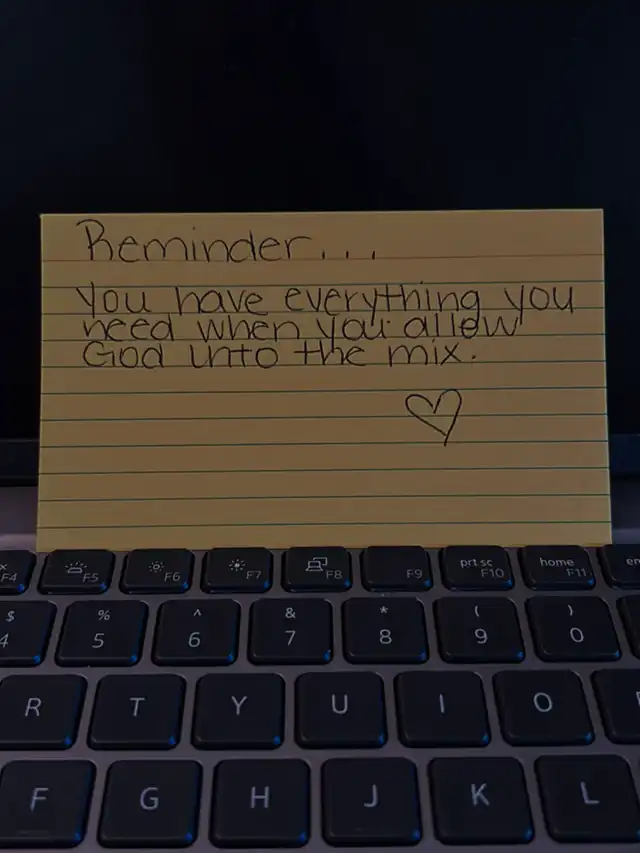 Reminder...
You have everything you
need when you allow
God into the mix.
F4 F5 F6 F7 F8 F9 prt sc F10 home F11
$ % ^ & * ( )
4 5 6 7 8 9 0
R T Y U I O
F G H J K L